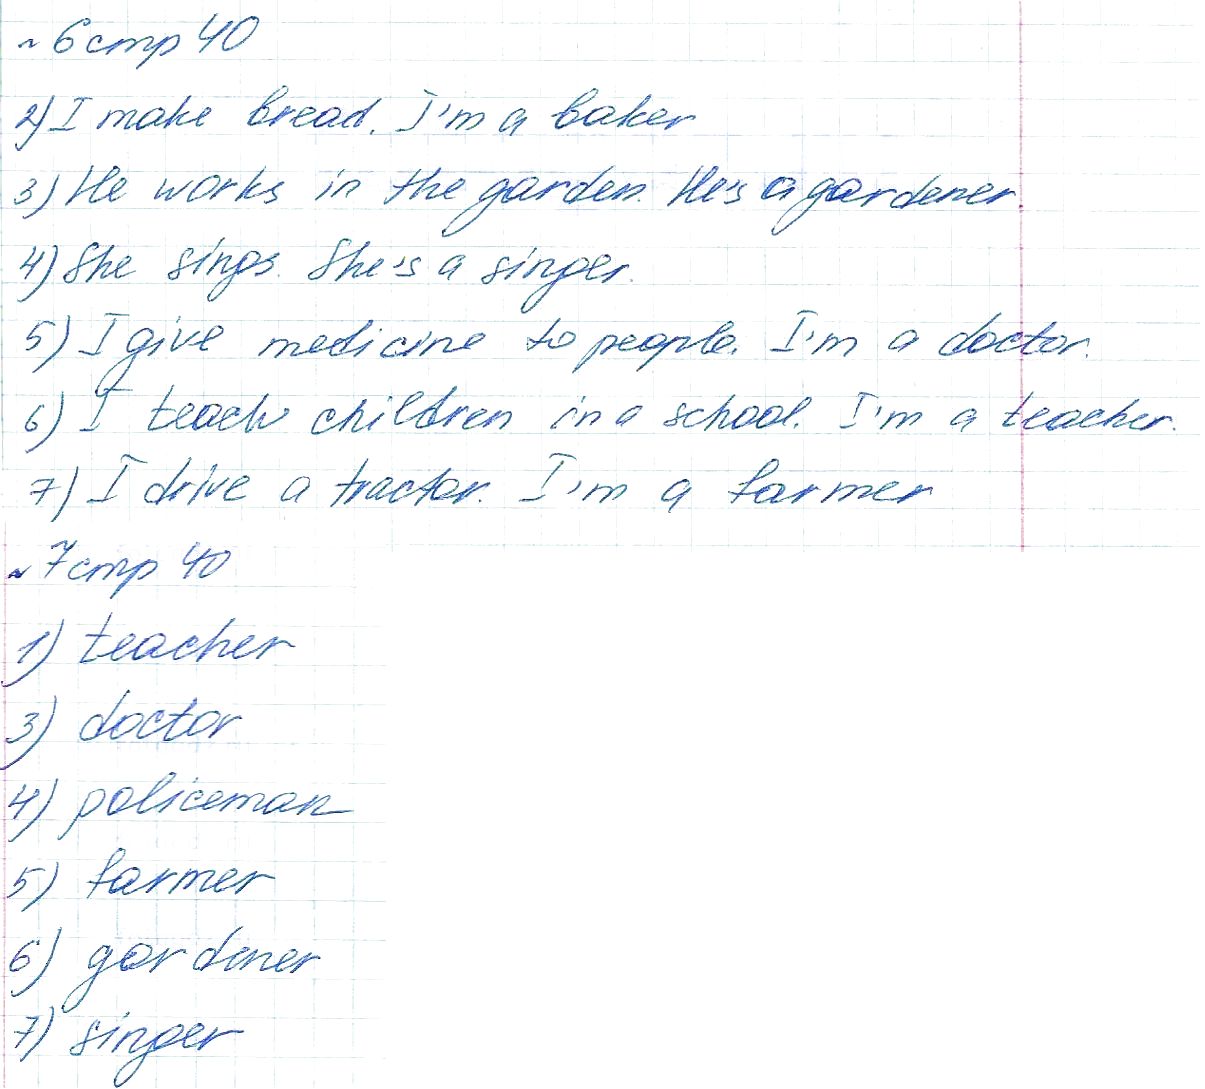 ~ 6 стр 40
2) I make bread. I'm a baker
3) He works in the garden. He's a gardener.
4) She sings. She's a singer.
5) I give medicine to people. I'm a doctor.
6) I teach children in a school. I'm a teacher.
7) I drive a tractor. I'm a farmer
~ 7 стр 40
1) teacher
3) doctor
4) policeman
5) farmer
6) gardener
7) singer